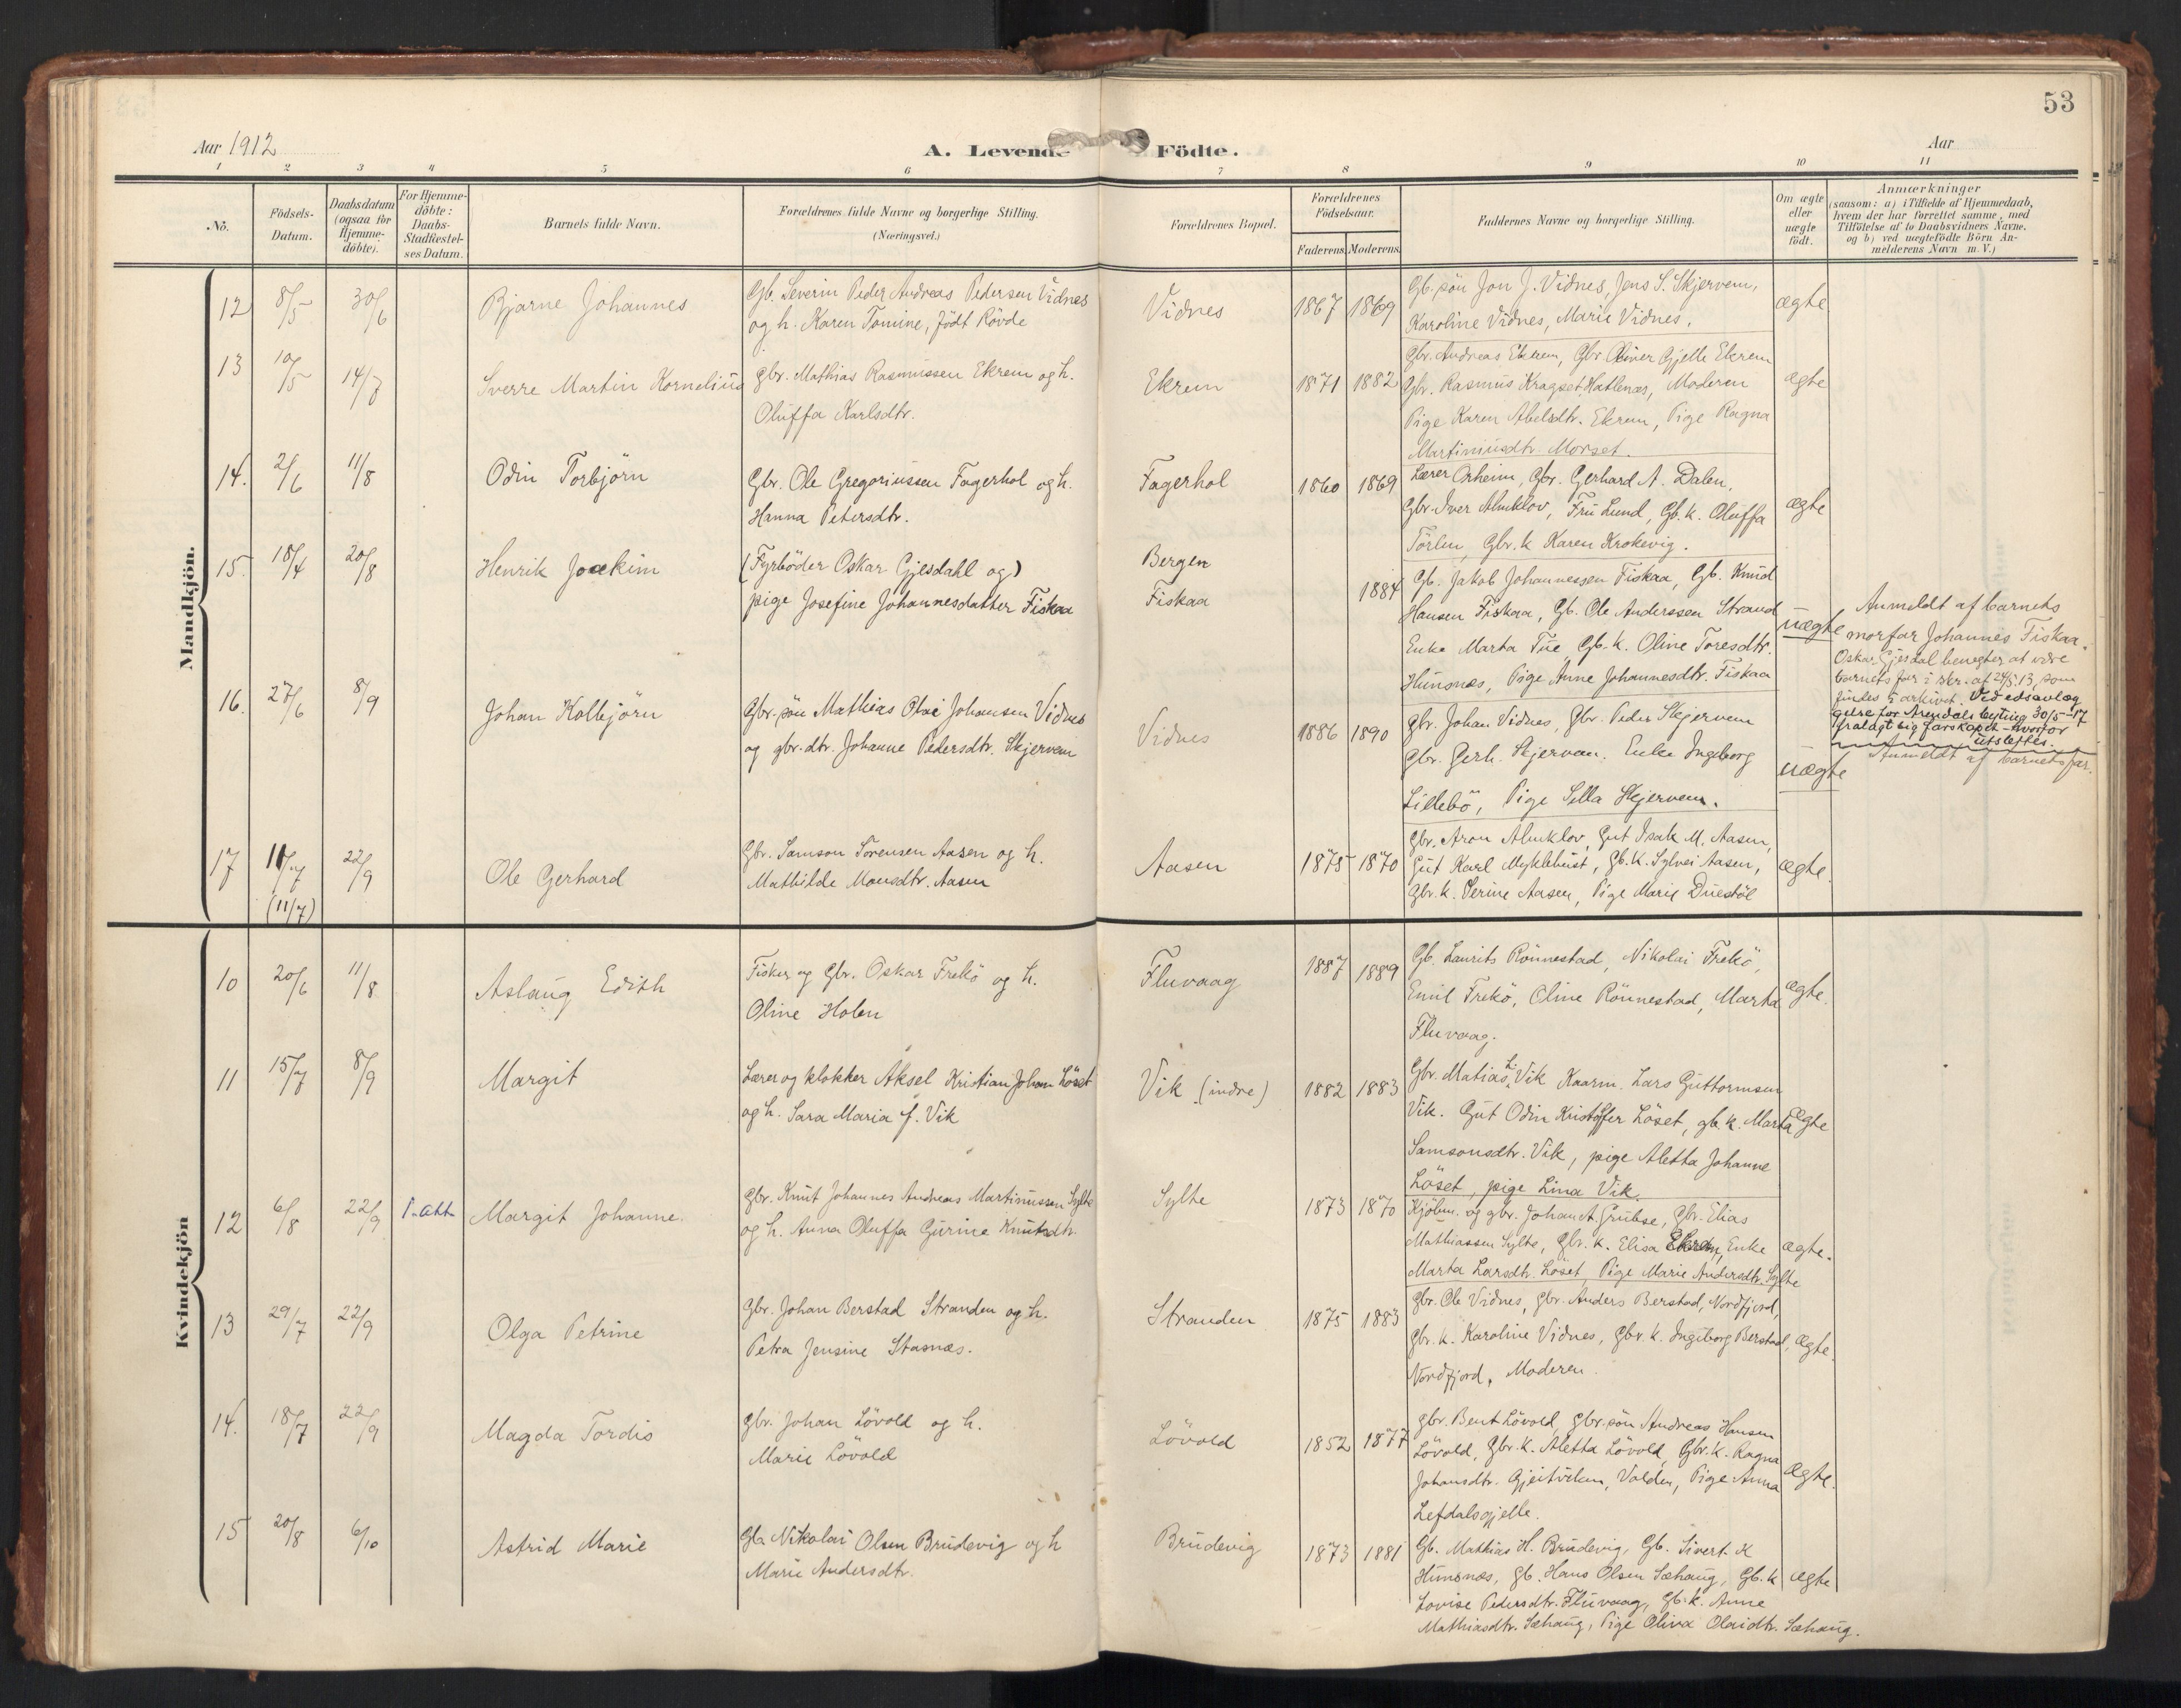 53
Aar 1912
A. Levende Födte.
Aar
1 2 3 4 5 6 7 8 9 10 11
No.
Födsels-
Datum.
Daabsdatum
(ogsaa for
Hjemme-
döbte).
For Hjemme-
döbte:
Daabs-
Stadfæstel-
ses Datum.
Barnets fulde Navn.
Forældrenes fulde Navne og borgerlige Stilling.
(Næringsvei.)
Forældrenes Bopæl.
Forældrenes
Födselsaar.
Faderens. Moderens.
Faddernes Navne og borgerlige Stilling.
Om ægte
eller
uægte
födt.
Anmærkninger
(saasom: a) i Tilfælde af Hjemmedaab,
hvem der har forrettet samme, med
Tilföielse af to Daabsvidners Navne,
og b) ved uægtefödte Börn An-
melderens Navn m. V.)
Mandkjön.
12 8/5 30/6 Bjarne Johannes
Gb. Severin Peder Andreas Pedersen Vidnes
og h. Karen Tomine, født Rövde
Vidnes 1867 1869
Gb. sön Jon J. Vidnes, Jens S. Skjervem,
Karoline Vidnes, Marie Vidnes.
ægte
13 10/5 14/7 Sverre Martin Kornelius
Gbr. Mathias Rasmussen Ekrem og h.
Oluffa Karlsdtr.
Ekrem 1871 1882
Gbr. Andreas Ekrem, Gbr. Oliver Gjelle Ekrem
Gbr. Rasmus Kragset, Hatlenæs, Moderen
Pige Karen Abelsdtr. Ekrem, Pige Ragna
Martiniusdtr. Morset.
ægte
14. 2/6 11/8 Odin Torbjörn
Gbr. Ole Gregoriussen Fagerhol og h.
Hanna Petersdtr.
Fagerhol 1860 1869
Lærer Orheim, Gbr. Gerhard A. Dalen,
Gbr. Iver Almklov, Fru Lund, Gb. k. Oluffa
Törlen, Gbr. k Karen Krokevig.
ægte
15. 18/4 20/8 Henrik Joakim
(Fyrböder Oskar Gjesdahl og)
pige Josefine Johannesdatter Fiskaa
Bergen
Fiskaa 1884
Gb. Jakob Johannessen Fiskaa, Gb. Knud
Hansen Fiskaa, Gb. Ole Anderssen Strand
Enke Marta Tue, Gb. k. Oline Toresdtr.
Hunsnes, Pige Anne Johannesdtr. Fiskaa
uægte
Anmeldt af barnets
morfar Johannes Fiskaa.
Oskar Gjesdal benegter at være
barnets far i skr. af 24/5.13, som
findes i arkivet. Ved edsavlæg
gelse for Arendals byting 30/5-17
fralagt sig farskapet - hvorfor
utslettes.
16. 27/6 8/9 Johan Kolbjörn
Gbr. sön Mathias Olai Johansen Vidnes
og gbr. dtr. Johanne Pedersdtr. Skjervem
Vidnes 1886 1890
Gbr. Johan Vidnes, Gbr. Peder Skjervem
Gbr. Gerh. Skjervem. Enke Ingeborg
Lillebö, Pige Sella Skjervem.
uægte
Anmeldt af barnets far.
17 11/7 22/9 Ole Gerhard
(11/7)
Gbr. Samson Sörensen Aasen og h.
Mathilde Monsdtr. Aasen
Aasen 1875 1870
Gbr. Aron Almklov, Gut Isak M. Aasen,
Gut Karl Myklebust, Gb. K. Sylvei Aasen,
Gbr. k. Serine Aasen, Pige Marie Duestöl
ægte.
Kvindekjön
10 20/6 11/8 Aslaug Edith
Fisker og Gbr. Oskar Frekö og h.
Oline Holen
Fluvaag 1887 1889
Gb. Laurits Rönnestad, Nikolai Frekö,
Emil Frekö, Oline Rönnestad, Marta
Fluvaag.
ægte.
11 15/7 8/9 Margit
Lærer og klokker Aksel Kristian Johan Löset
og h. Sara Maria f. Vik
Vik (indre) 1882 1883
Gbr. Matias L. Vik Kaarm. Lars Guttormsen
Vik. Gut Odin Kristoffer Löset, gb. k. Marta
Samsonsdtr. Vik, pige Aletta Johanne
Löset, pige Lina Vik.
Ægte
12 6/8 22/9 P. att. Margit Johanne.
Gbr. Knut Johannes Andreas Martinussen Sylte
og h. Anna Oluffa Gurine Knutsdtr.
Sylte 1873 1870
Kjöbm. og gbr. Johan A. Grubse, Gbr. Elias
Mathiassen Sylte, Gbr. k. Elisa Ekrem, Enke
Marta Larsdtr. Löset, Pige Marie Andersdtr. Sylte
ægte.
13 29/7 22/9 Olga Petrine
Gbr. Johan Berstad Stranden og h.
Petra Jensine Stasnæs.
Stranden 1875 1883
Gbr. Ole Vidnes, Gbr. Anders Berstad, Nordfjord,
Gbr. k. Karoline Vidnes, Gbr. k. Ingiborg Berstad,
Nordfjord, Moderen.
ægte.
14. 18/7 22/9 Magda Tordis
Gbr. Johan Lövold og h.
Marie Lövold
Lövold 1852 1877
Gbr. Bent Lövold, Gbr. sön Andreas Hansen
Lövold, Gbr. K. Aletta Lövold, Gbr. k. Ragna
Johansdtr. Gjeitviken, Volden, Pige Anna
Lefdalsgjelle.
ægte.
15 20/8 6/10 Astrid Marie
Gb. Nikolai Olsen Brudevig og h
Marie Andersdtr.
Brudevig 1873 1881
Gb. Mathias H. Brudevig, Gb. Sivert K
Hunsnæs, Gb. Hans Olsen Sæhaug, Gb. k
Lovise Pedersdtr. Fluvaag, Gb. k. Anne
Mathiasdtr. Sæhaug, Pige Oliva Olaidtr. Sæhaug.
ægte